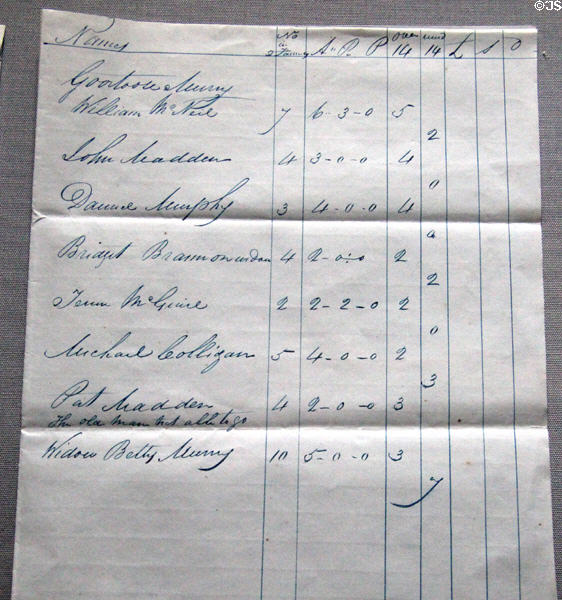 © JS
Names No in Family A R P over 14 under 14 £ S D
Murry
William McNeil 7 6-3-0 5
2
John Madden 4 3-0-0 4
0
Daniel Murphy 3 4-0-0 4
0
Bridget Brannon widow 4 2-0-0 2
2
McGuire 2 2-2-0 2
0
Michael Colligan 5 4-0-0 2
3
Pat Madden 4 2-0-0 3
The old man not able to go
Widow Betty Murry 10 5-0-0 3
7